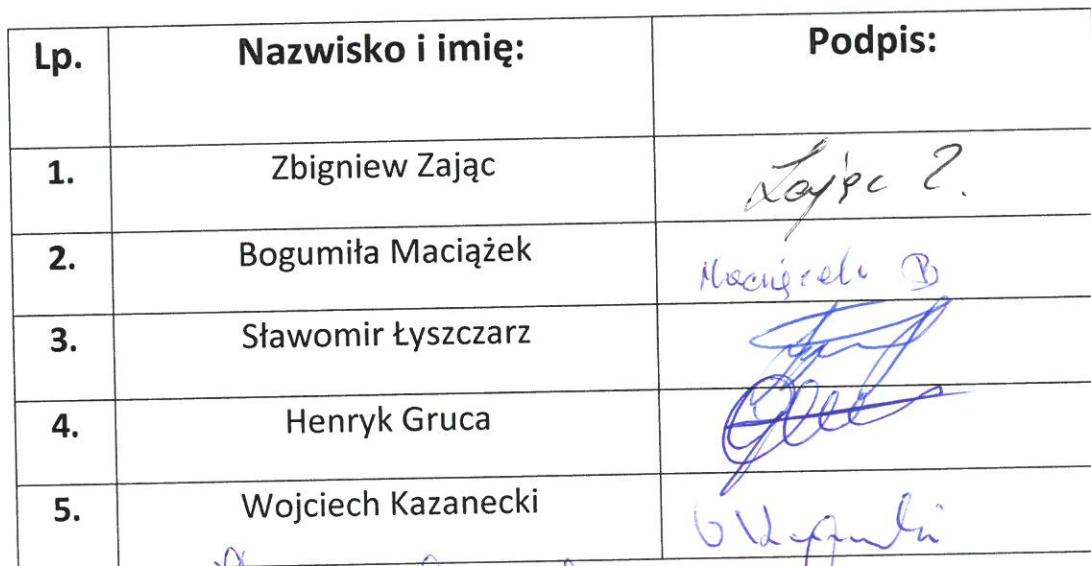 Lp. Nazwisko i imię: Podpis:
1. Zbigniew Zając Zając Z.
2. Bogumiła Maciążek Maciążek B
3. Sławomir Łyszczarz
4. Henryk Gruca
5. Wojciech Kazanecki